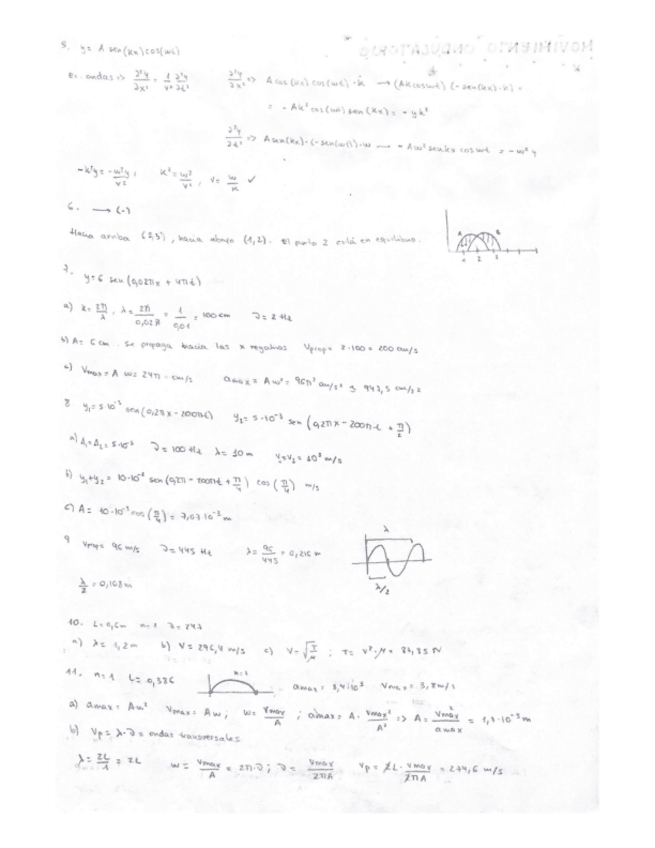 5. y = A sen(kx) cos(wt)
Ec. ondas => ∂²y/∂x² = 1/v² ∂²y/∂t²   ∂²y/∂x² => A cos(kx) cos(wt) · k → (Ak cos wt) (-sen(kx) · k) =
= - Ak² cos(wt) sen(kx) = - yk²
∂²y/∂t² => A sen(kx) · (-sen(wt)) · w → - Aw² sen kx cos wt = - w² y
-k²y = -w²y/v² ; k² = w²/v² , v = w/k ✓
6. → (-)
Hacia arriba (2,3), hacia abajo (1,2). El punto 2 está en equilibrio.
A B
1 2 3
7. y = 6 sen(0,02πx + 4πt)
a) k = 2π/λ , λ = 2π/0,02π = 1/0,01 = 100 cm   ν = 2 Hz
b) A = 6 cm. Se propaga hacia las x negativas   Vprop = 2·100 = 200 cm/s
c) Vmax = A w = 24π cm/s   amax = A w² = 96π² cm/s²
8 y₁ = 5·10⁻³ sen(0,2πx - 200πt)   y₂ = 5·10⁻³ sen(0,2πx - 200πt + π/2)
a) A₁ = A₂ = 5·10⁻³   ν = 100 Hz   λ = 10 m   v₁ = v₂ = 10³ m/s
b) y₁+y₂ = 10·10⁻³ sen(0,2π - 200πt + π/4) cos(π/4) m/s
c) A = 10·10⁻³ cos(π/4) = 7,07·10⁻³ m
9 Vprop = 96 m/s   ν = 445 Hz   λ = 96/445 = 0,216 m
λ
λ/2 = 0,108 m
λ/2
10. L = 0,6m   n = 1   ν = 247
a) λ = 1,2 m   b) V = 296,4 m/s   c) V = √(T/μ) ; T = v²·μ
11. n = 1   L = 0,386   n=1   amax = 8,4·10³   Vmax = 3,8 m/s
a) amax = Aw²   Vmax = Aw ; w = Vmax/A ; amax = A · Vmax²/A² => A = Vmax²/amax = 1,7·10⁻³ m
b) Vp = λ·ν = ondas transversales
λ = 2L/1 = 2L   w = Vmax/A = 2π·ν ; ν = Vmax/2πA   Vp = 2L · Vmax/2πA = 274,6 m/s